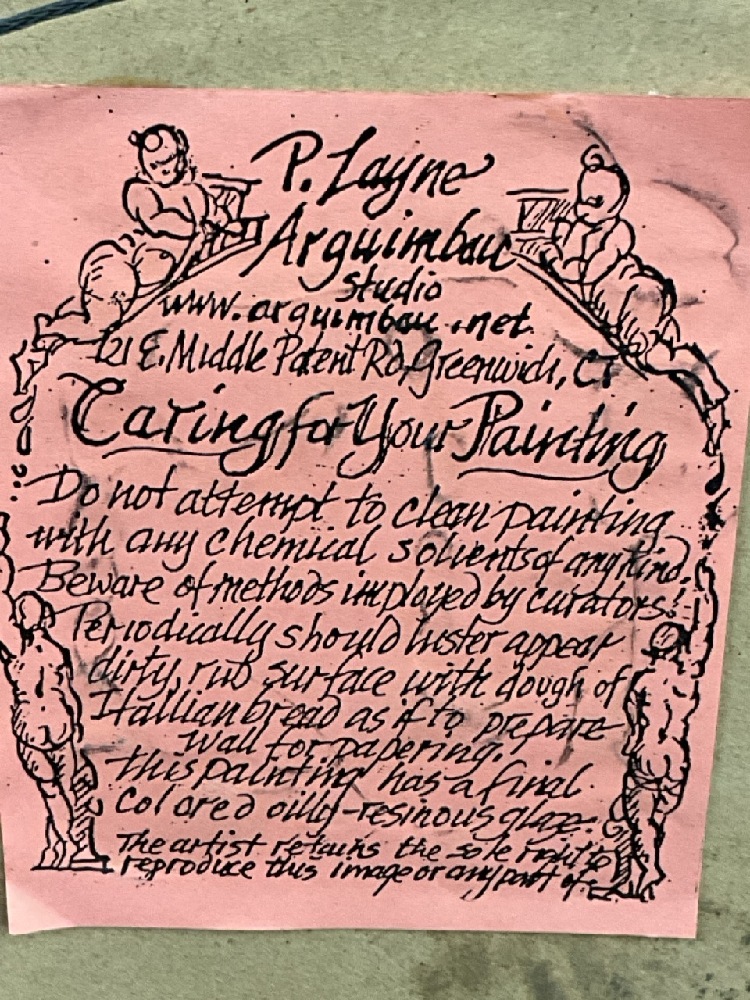 P. Layne
Arguimbau
Studio
www.arguimbau.net
121 E. Middle Patent Rd, Greenwich, CT
Caring for Your Painting
Do not attempt to clean painting
with any chemical solvents of any kind.
Beware of methods imployed by curators!
Periodically should luster appear
dirty, rub surface with dough of
Itallian bread as if to prepare
wall for papering.
this painting has a final
Colored oilly-resinous glaze.
The artist retains the sole right to
reproduce this image or any part of.